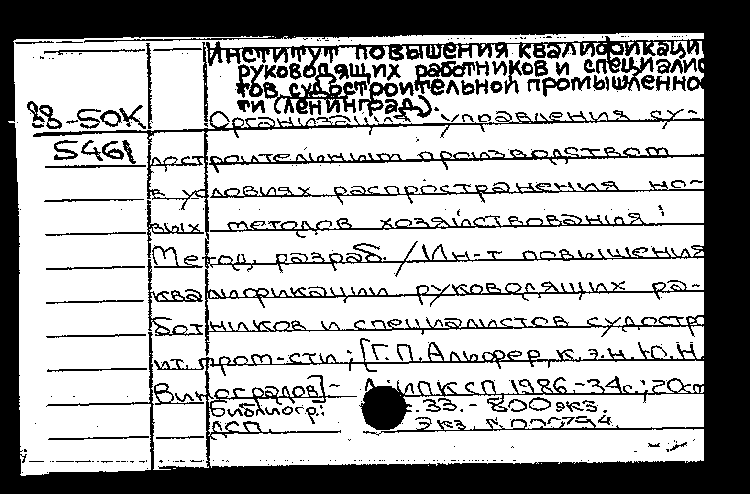 Институт повышения квалификаци
руководящих работников и специалис
тов судостроительной промышленно
ти (Ленинград).
88-50К
5461
Организация управления су-
достроительным производством
в условиях распространения но-
вых методов хозяйствования:
Метод. разраб. / Ин-т повышения
квалификации руководящих ра-
ботников и специалистов судостр
ит. пром-сти; [Г.П. Альфер, к.э.н. Ю.Н.
Виноградов] - Л.: ИПК СП, 1986. - 34 с.; 20 см
Библиогр: с. 33. - 800 экз.
ДСП. Экз. N 000794.